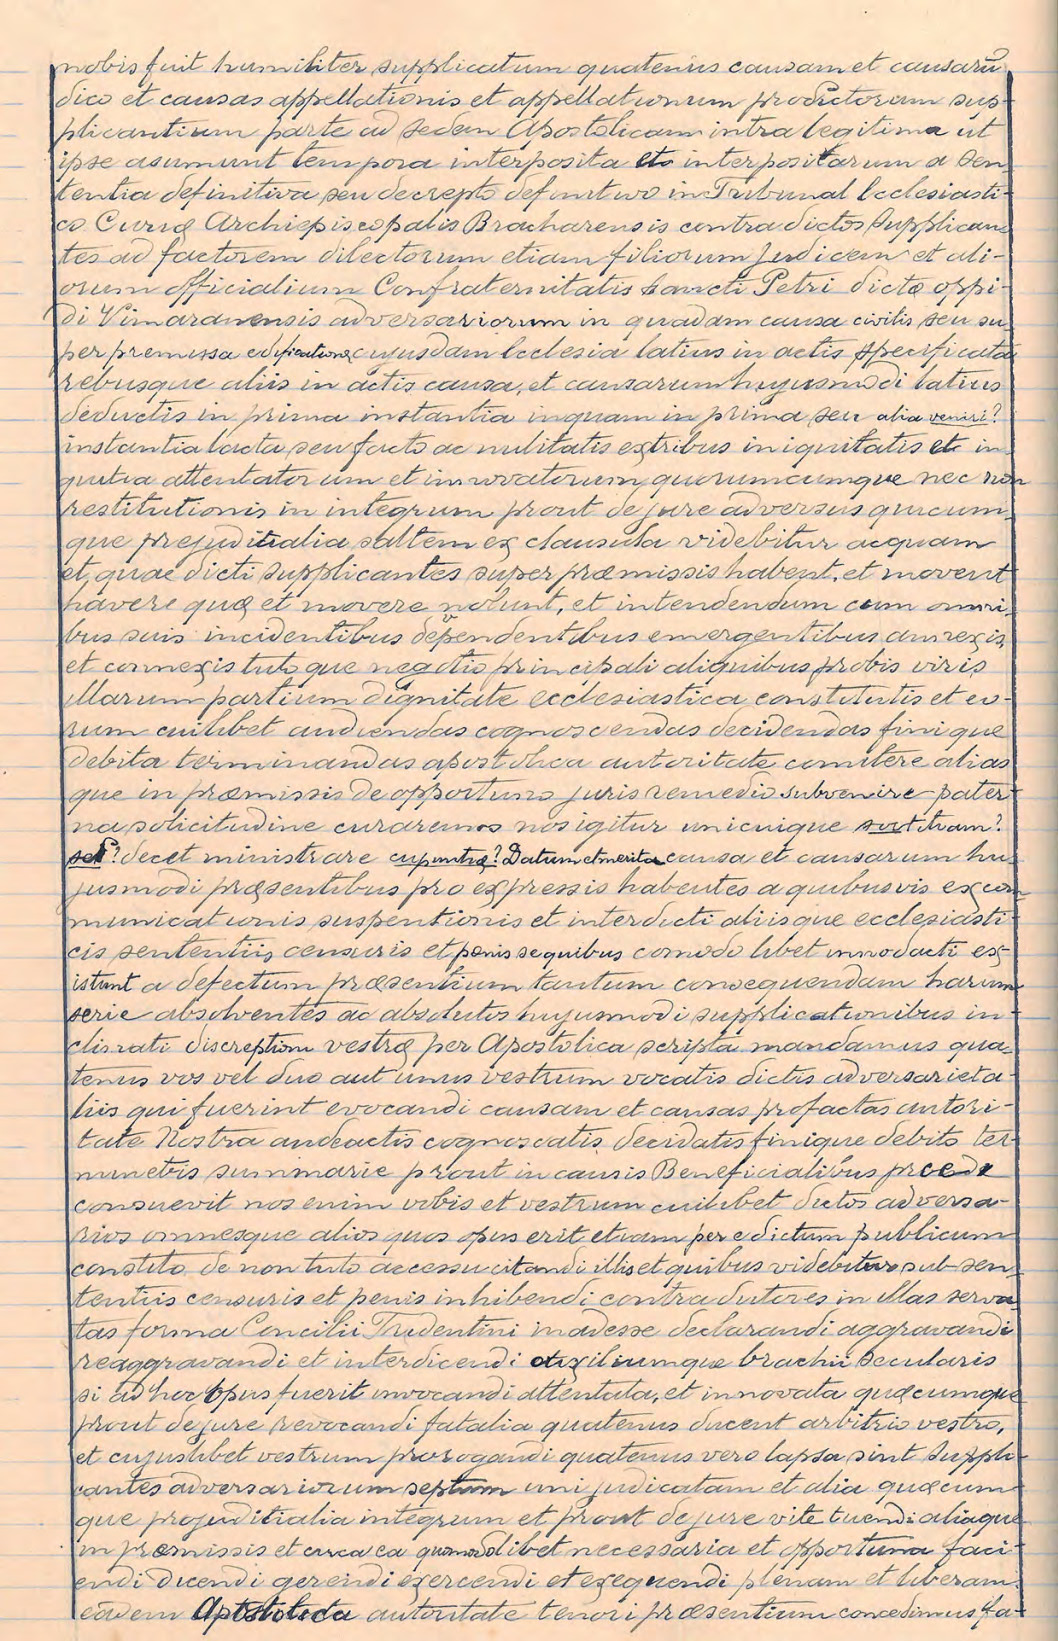 nobis fuit humiliter supplicatum quatenus causam et causarũ
dico et causas appellationis et appellationum prodictorum sus-
plicantium parte ad sedem Apostolicam intra legitima ut
ipse asumunt tempora interposita et interpositarum a sen-
tentia definitiva seu decrepto definitivo in Tribunal Ecclesiasti-
co Curiæ Archiepiscopalis Bracharensis contra dictos Supplican-
tes ad factorem dilectorum etiam filiorum Judicem et ali-
orum officialium Confraternitatis Sancti Petri dictæ oppi-
di Vimaranensis adversariorum in quadam causa civilis seu su-
per premissa edificatione cujusdam Ecclesia latius in actis specificata
rebusque aliis in actis causa, et causarum hujusmodi latius
deductis in prima instantia inquam in prima seu alia veniri?
instantia lacta seu facto ac nulitatis extribus iniquitatis et in-
quitia attentatorum et innovatorum quorumcumque nec non
restitutionis in integrum prout de jure adversus quicum-
que prejuditialia saltem ex clausula videbitur acquam
et quae dicti supplicantes super præmissis habent, et movent
havere quæ et movere nolunt, et intendendum cum omni-
bus suis incidentibus dependentibus emergentibus annexis,
et connexis tuto que negotio principali aliquibus probis viris
illarum partium dignitate ecclesiastica constitutis et eo-
rum cuilibet audiendas cognoscendas decidendas fini que
debita terminandas apostolica autoritate comitere alias
que in præmissis de opportuno juris remedio subvenire pater-
na solicitudine curaremos nos igitur unicuique sortitiam?
sed? decet ministrare cupuntiæ? Datum et merita causa et causarum hu-
jusmodi præsentibus pro expressis habentes a quibusvis excom
municationis suspentionis et interdicti aliisque ecclesiasti-
cis sententiis censuris et penis sequibus comodo libet innodacti ex-
istunt a defectum præsentium tantum consequendam harum
serie absolventes ac absolutos hujusmodi supplicationibus in-
clinati discreptioni vestræ per Apostolica scripta mandamus qua-
tenus vos vel duo aut unus vestrum vocatis dictis adversarieta-
liis qui fuerint evocandi causam et causas profactas autori-
tate Nostra audeactis cognoscatis decidatis finique debito ter-
minetis summarie prout in causis Beneficialibus procedi
consuevit nos enim vobis et vestrum cuilibet dictos adversa-
rios omnesque alios quos opus erit etiam per edictum publicum
constito de non tuto accessu citandi illis et quibus videbitur sub sen-
tentiis censuris et penis inhibendi contradutores in illas serva-
tas forma Concilii Tridentini inadesse declarandi aggravandi
reaggravandi et interdicendi auxiliumque brachii secularis
si ad hoc opus fuerit invocandi attentata, et innovata quæcumque
prout de jure revocandi fatalia quatenus ducent arbitrio vestro,
et cujuslibet vestrum prorogandi quatenus vero lapsa sint suppli-
cantes adversariorum septum uni judicatam et alia quæcum-
que prejuditialia integrum et prout de jure vite tuendi aliaque
in præmissis et circa ea quomodolibet necessaria et opportuna faci-
endi dicendi gerendi exercendi et exequendi plenam et liberam
eadem Apostolica autoritate tenori præsentium concedimus fa-